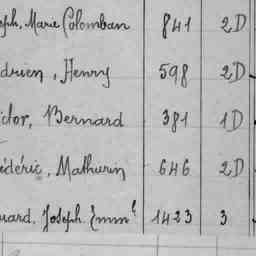 eph, Marie Colomban 841 2D
drien, Henry 598 2D
ictor, Bernard 381 1D
édéric, Mathurin 646 2D
uard, Joseph, Emmˡ 1423 3